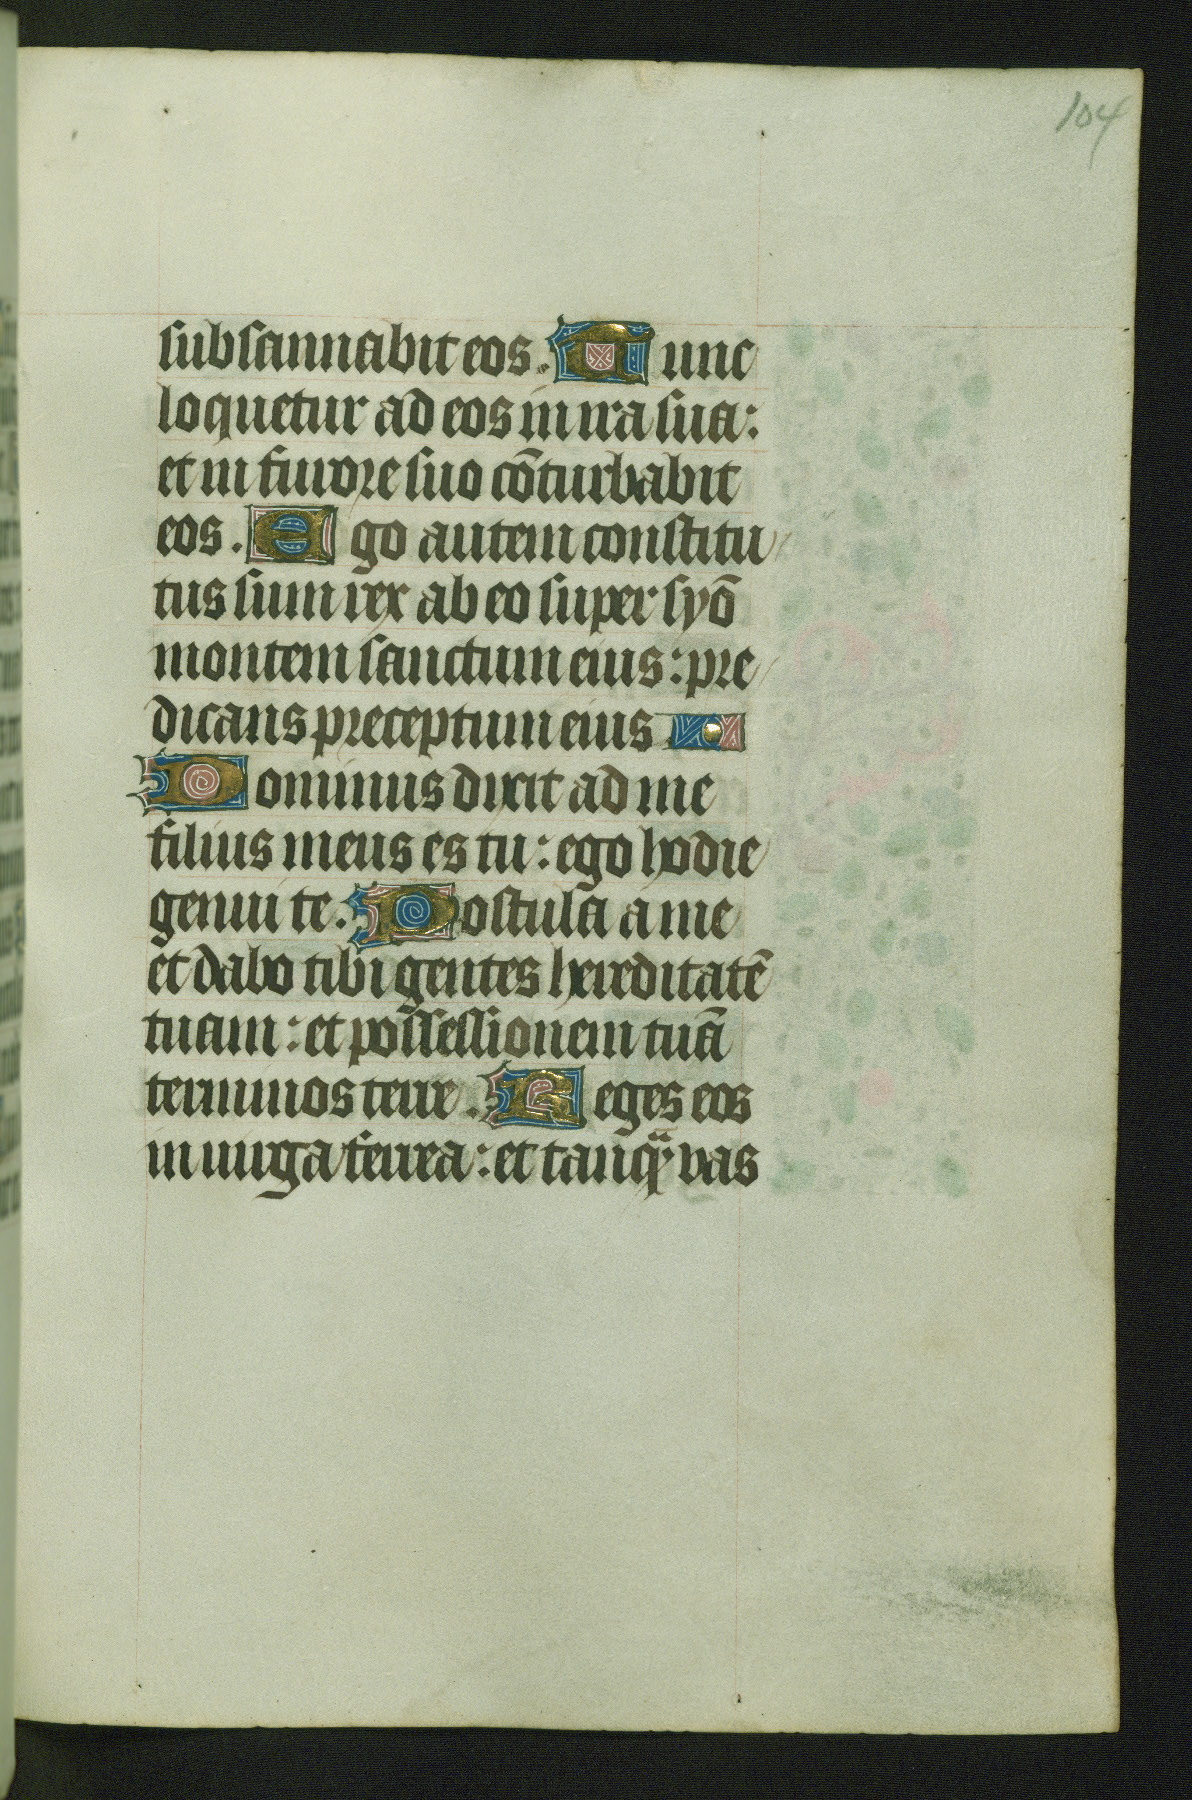 104
subsannabit eos. Tunc
loquetur ad eos in ira sua:
et in furore suo cōturbabit
eos. Ego autem constitu
tus sum rex ab eo super syō
montem sanctum eius: pre
dicans preceptum eius
Dominus dixit ad me
filius meus es tu: ego hodie
genui te. Postula a me
et dabo tibi gentes hereditatē
tuam: et possessionem tuā
terminos terre. Reges eos
in uirga ferrea: et tanq̄ vas